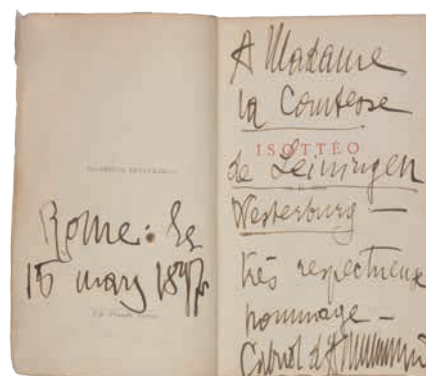 Rome: le
15 mars 1897
A Madame
la Comtesse
ISOTTÈO
de Leiningen
Westerburg —
très respectueux
hommage —
Gabriel d'Annunzio